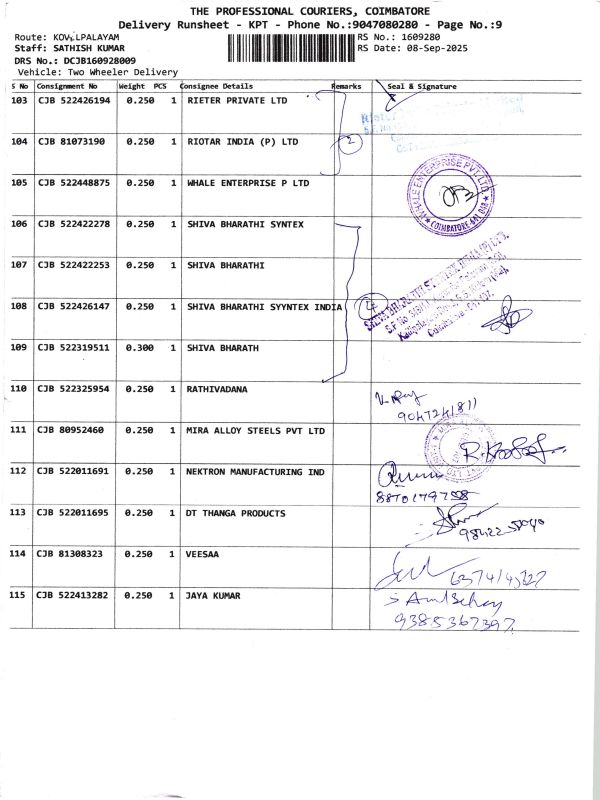 THE PROFESSIONAL COURIERS, COIMBATORE
Delivery Runsheet - KPT - Phone No.:9047080280 - Page No.:9
Route: KOVILPALAYAM RS No.: 1609280
Staff: SATHISH KUMAR RS Date: 08-Sep-2025
DRS No.: DCJB160928009
Vehicle: Two Wheeler Delivery
S No Consignment No Weight PCS Consignee Details Remarks Seal & Signature
103 CJB 522426194 0.250 1 RIETER PRIVATE LTD
104 CJB 81073190 0.250 1 RIOTAR INDIA (P) LTD 2
105 CJB 522448875 0.250 1 WHALE ENTERPRISE P LTD
WHALE ENTERPRISE PVT LTD
COIMBATORE-641
106 CJB 522422278 0.250 1 SHIVA BHARATHI SYNTEX
107 CJB 522422253 0.250 1 SHIVA BHARATHI
108 CJB 522426147 0.250 1 SHIVA BHARATHI SYYNTEX INDIA 4
109 CJB 522319511 0.300 1 SHIVA BHARATH
110 CJB 522325954 0.250 1 RATHIVADANA
9047241811
111 CJB 80952460 0.250 1 MIRA ALLOY STEELS PVT LTD
112 CJB 522011691 0.250 1 NEKTRON MANUFACTURING IND
113 CJB 522011695 0.250 1 DT THANGA PRODUCTS
114 CJB 81308323 0.250 1 VEESAA
115 CJB 522413282 0.250 1 JAYA KUMAR
9385367397